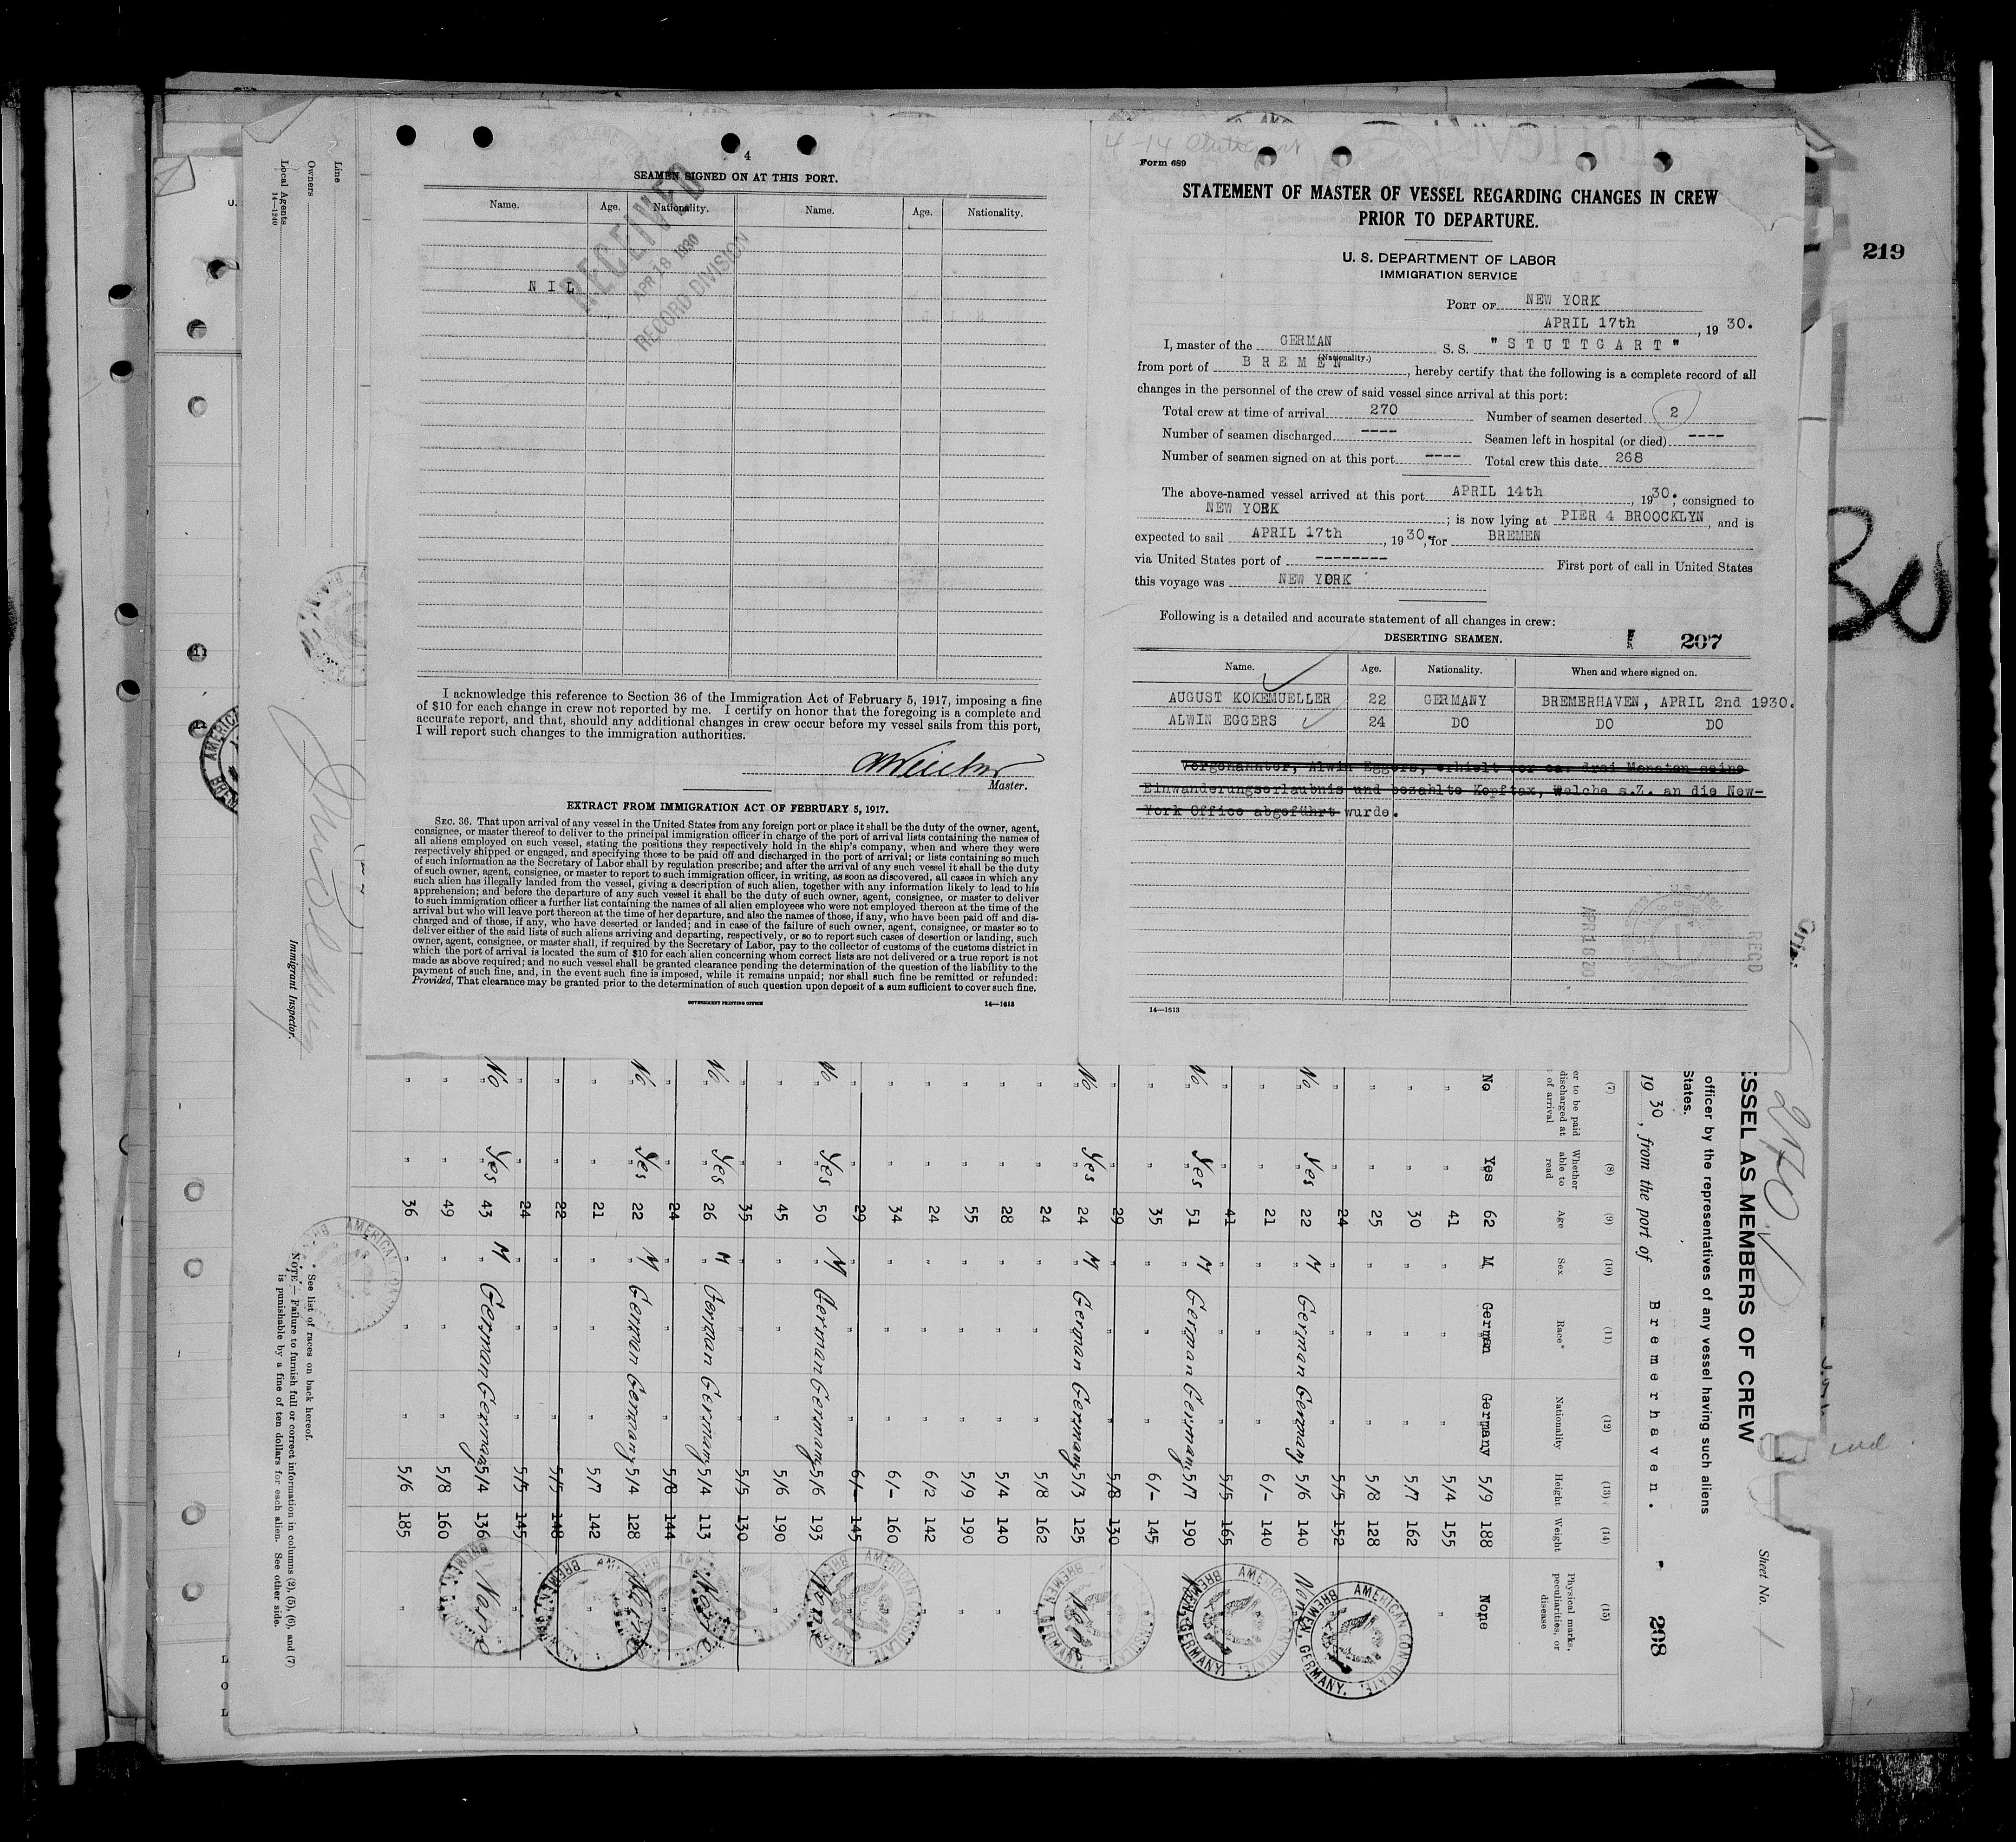 4
SEAMEN SIGNED ON AT THIS PORT.
Name. Age. Nationality. Name. Age. Nationality.
N I L
RECEIVED
APR 18 1930
RECORD DIVISION
I acknowledge this reference to Section 36 of the Immigration Act of February 5, 1917, imposing a fine
of $10 for each change in crew not reported by me. I certify on honor that the foregoing is a complete and
accurate report, and that, should any additional changes in crew occur before my vessel sails from this port,
I will report such changes to the immigration authorities.
Master.
EXTRACT FROM IMMIGRATION ACT OF FEBRUARY 5, 1917.
SEC. 36. That upon arrival of any vessel in the United States from any foreign port or place it shall be the duty of the owner, agent,
consignee, or master thereof to deliver to the principal immigration officer in charge of the port of arrival lists containing the names of
all aliens employed on such vessel, stating the positions they respectively hold in the ship's company, when and where they were
respectively shipped or engaged, and specifying those to be paid off and discharged in the port of arrival; or lists containing so much
of such information as the Secretary of Labor shall by regulation prescribe; and after the arrival of any such vessel it shall be the duty
of such owner, agent, consignee, or master to report to such immigration officer, in writing, as soon as discovered, all cases in which any
such alien has illegally landed from the vessel, giving a description of such alien, together with any information likely to lead to his
apprehension; and before the departure of any such vessel it shall be the duty of such owner, agent, consignee, or master to deliver
to such immigration officer a further list containing the names of all alien employees who were not employed thereon at the time of the
arrival but who will leave port thereon at the time of her departure, and also the names of those, if any, who have been paid off and dis-
charged and of those, if any, who have deserted or landed; and in case of the failure of such owner, agent, consignee, or master so to
deliver either of the said lists of such aliens arriving and departing, respectively, or so to report such cases of desertion or landing, such
owner, agent, consignee, or master shall, if required by the Secretary of Labor, pay to the collector of customs of the customs district in
which the port of arrival is located the sum of $10 for each alien concerning whom correct lists are not delivered or a true report is not
made as above required; and no such vessel shall be granted clearance pending the determination of the question of the liability to the
payment of such fine, and, in the event such fine is imposed, while it remains unpaid; nor shall such fine be remitted or refunded:
Provided, That clearance may be granted prior to the determination of such question upon deposit of a sum sufficient to cover such fine.
GOVERNMENT PRINTING OFFICE 14—1613
4-14 Stuttgart
Form 689
STATEMENT OF MASTER OF VESSEL REGARDING CHANGES IN CREW
PRIOR TO DEPARTURE.
U. S. DEPARTMENT OF LABOR
IMMIGRATION SERVICE
PORT OF NEW YORK
APRIL 17th, 1930.
I, master of the GERMAN S. S. "STUTTGART"
(Nationality.)
from port of BREMEN, hereby certify that the following is a complete record of all
changes in the personnel of the crew of said vessel since arrival at this port:
Total crew at time of arrival 270 Number of seamen deserted 2
Number of seamen discharged ---- Seamen left in hospital (or died) ----
Number of seamen signed on at this port ---- Total crew this date 268
The above-named vessel arrived at this port APRIL 14th, 1930; consigned to
NEW YORK; is now lying at PIER 4 BROOCKLYN, and is
expected to sail APRIL 17th, 1930, for BREMEN
via United States port of -------- First port of call in United States
this voyage was NEW YORK
Following is a detailed and accurate statement of all changes in crew:
DESERTING SEAMEN. 207
Name. Age. Nationality. When and where signed on.
AUGUST KOKEMUELLER 22 GERMANY BREMERHAVEN, APRIL 2nd 1930.
ALWIN EGGERS 24 DO DO DO
Vorgenannter, Alwin Eggers, erhielt vor ca. drei Monaten seine
Einwanderungserlaubnis und bezahlte Kopftax, welche s.Z. an die New-
York Office abgeführt wurde.
14—1613
219
30
Line
Owners
Local Agents
14—1240
Immigrant Inspector.
* See list of races on back hereof.
NOTE.—Failure to furnish full or correct information in columns (2), (5), (6), and (7)
is punishable by a fine of ten dollars for each alien. See other side.
Sheet No. 1
270
SSEL AS MEMBERS OF CREW
officer by the representatives of any vessel having such aliens
States.
1930, from the port of Bremerhaven. 208
(7) (8) (9) (10) (11) (12) (13) (14) (15)
er to be paid discharged at of arrival Whether able to read Age Sex Race* Nationality Height Weight Physical marks, peculiarities, or disease
No Yes 62 M German Germany 5/9 188 None
" " 41 " " " 5/4 155 "
" " 30 " " " 5/7 162
" " 25 " " " 5/8 128
" " 24 " " " 5/5 152
No Yes 22 M German Germany 5/6 140 None
" " 21 " " " 6/- 140
" " 41 " " " 5/5 165
No Yes 51 M German Germany 5/7 190
" " 35 " " " 6/- 145
" " 29 " " " 5/8 130
No Yes 24 M German Germany 5/3 125 None
" " 24 " " " 5/8 162 "
" " 28 " " " 5/4 140 "
" " 55 " " " 5/9 190 "
" " 24 " " " 6/2 142 "
" " 34 " " " 6/- 160
" " 29 " " " 6/- 145
No Yes 50 M German Germany 5/6 193 None
" " 45 " " " 5/6 190 "
" " 35 " " " 5/5 130
No Yes 26 M German Germany 5/4 113 None
" " 24 " " " 5/8 144
No Yes 22 M German Germany 5/4 128 None
" " 21 " " " 5/7 142 "
" " 22 " " " 5/5 148
" " 24 " " " 5/5 145
No Yes 43 M German Germany 5/4 136 None
" " 49 " " " 5/8 160
" " 36 " " " 5/6 185 "
AMERICAN CONSULATE, BREMEN, GERMANY.